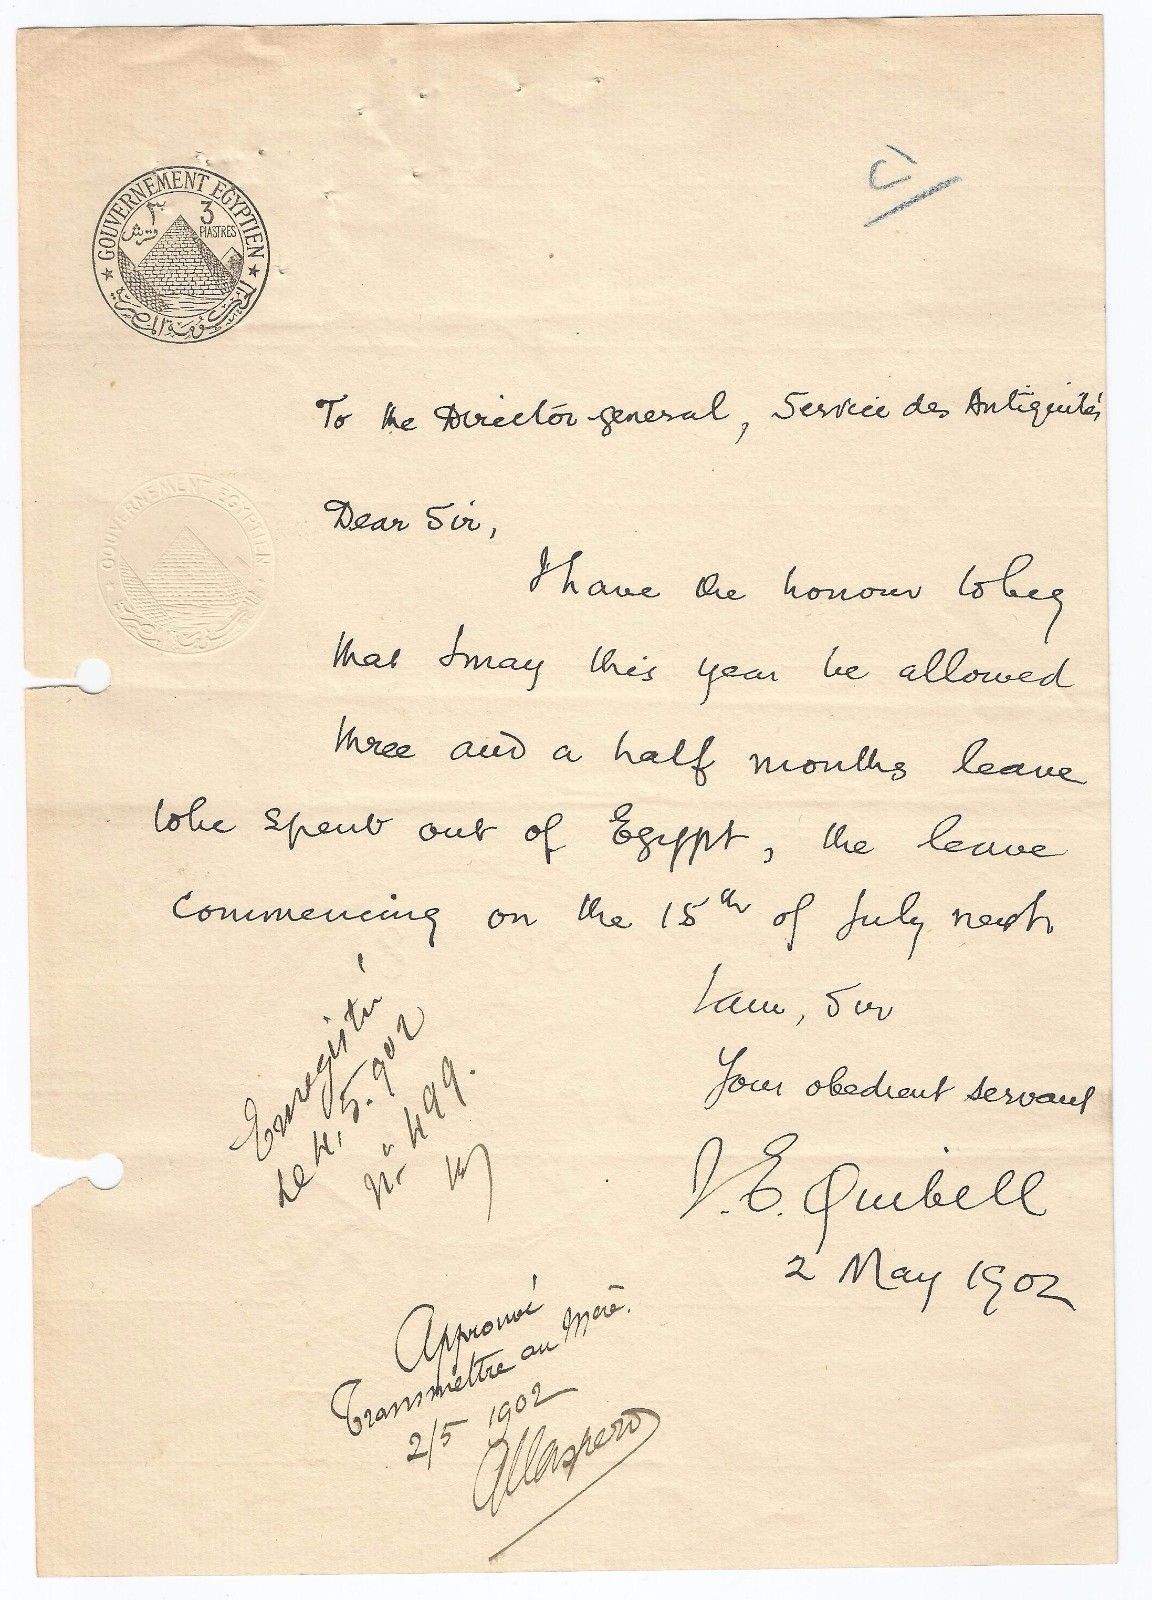 GOUVERNEMENT EGYPTIEN
٣ قرش
3 PIASTRES
الحكومة المصرية
To the Director general, Service des Antiquités
GOUVERNEMENT EGYPTIEN
Dear Sir,
I have the honour to beg
that I may this year be allowed
three and a half months leave
to be spent out of Egypt, the leave
commencing on the 15th of July next
I am, Sir
Your obedient servant
J. E. Quibell
2 May 1902
Enregistré
Le 4.5.902
No 499.
Approuvé
Transmettre au Mère.
2/5 1902
GMaspero